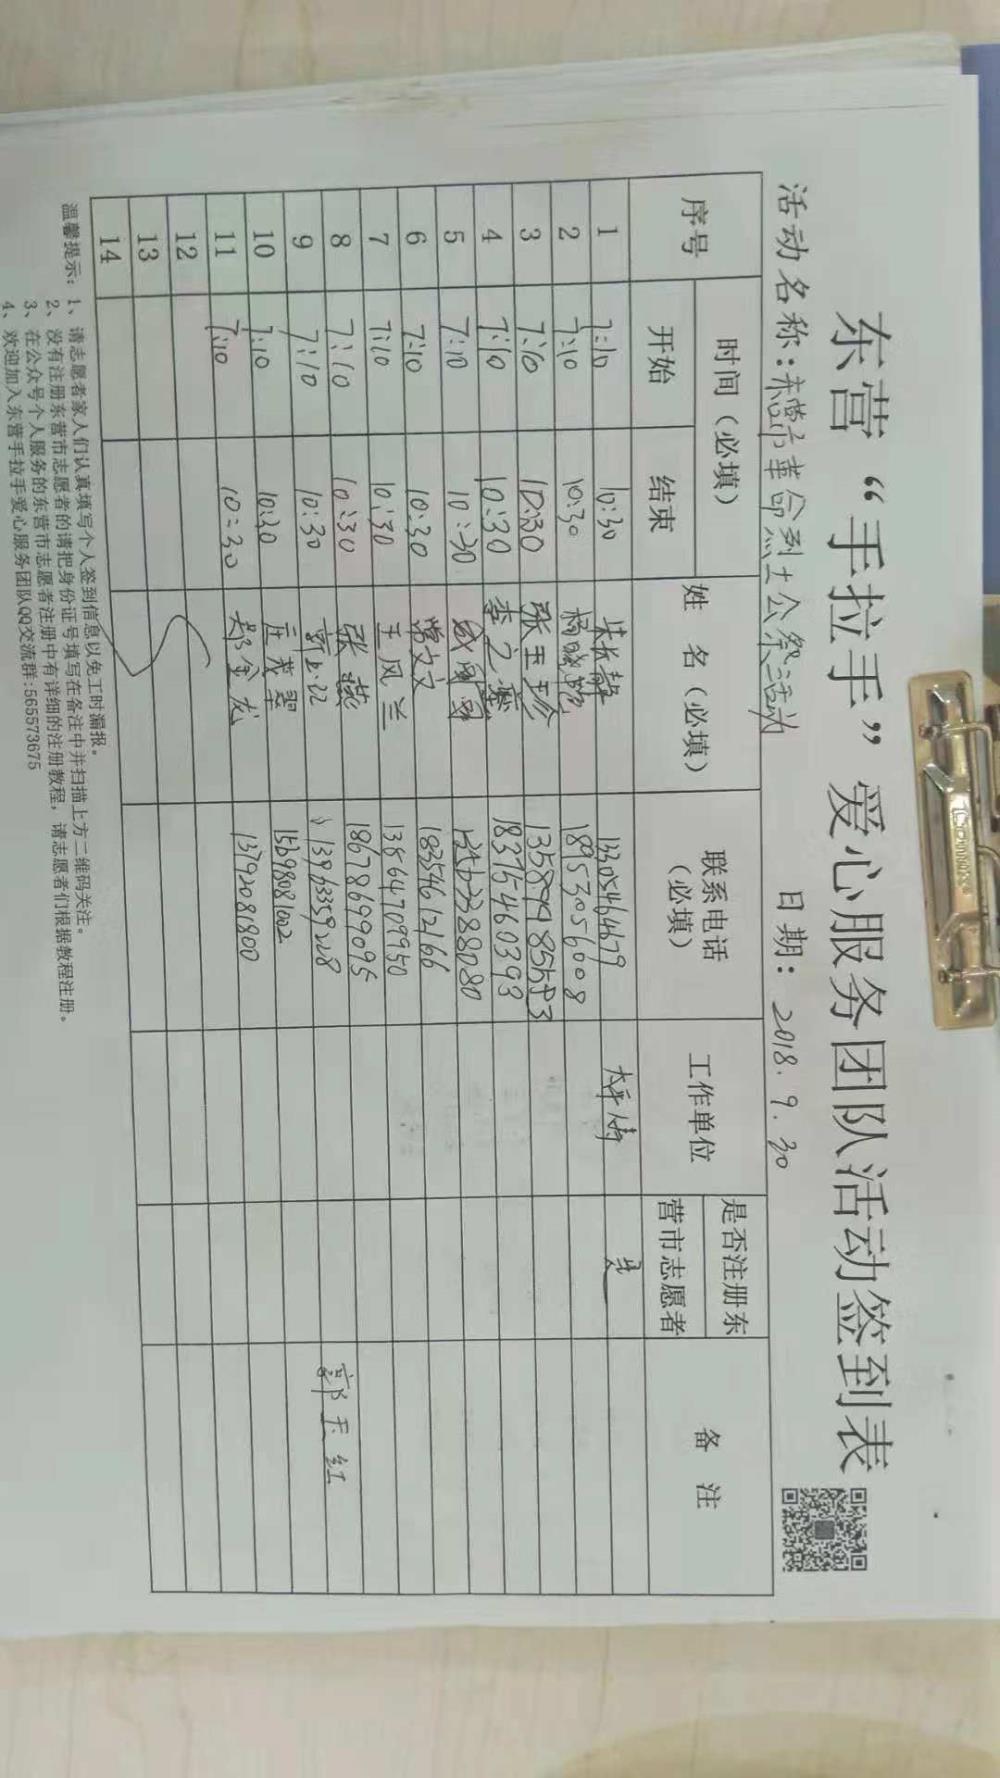 东营“手拉手”爱心服务团队活动签到表
活动名称：东营市革命烈士公祭活动 日期：2018.9.30
序号 时间（必填） 姓 名（必填） 联系电话（必填） 工作单位 是否注册东营市志愿者 备 注
开始 结束
1 7:10 10:30 13305464679 是
2 7:10 10:30 18953056008
3 7:10 10:30 张玉珍
4 7:10 10:30 18375460393
5 7:10 10:30
6 7:10 10:30 常文文 18354612166
7 7:10 10:30 王凤兰 13864709950
8 7:10 10:30 张燕 18678699095
9 7:10 10:30 13963359208 郭玉红
10 7:10 10:30 庄茂翠 15698081002
11 7:10 10:30 13792081800
12
13
14
温馨提示：1、请志愿者家人们认真填写个人签到信息以免工时漏报。
2、没有注册东营市志愿者的请把身份证号填写在备注中并扫描上方二维码关注。
3、在公众号个人服务的东营市志愿者注册中有详细的注册教程，请志愿者们根据教程注册。
4、欢迎加入东营手拉手爱心服务团队QQ交流群:565573675